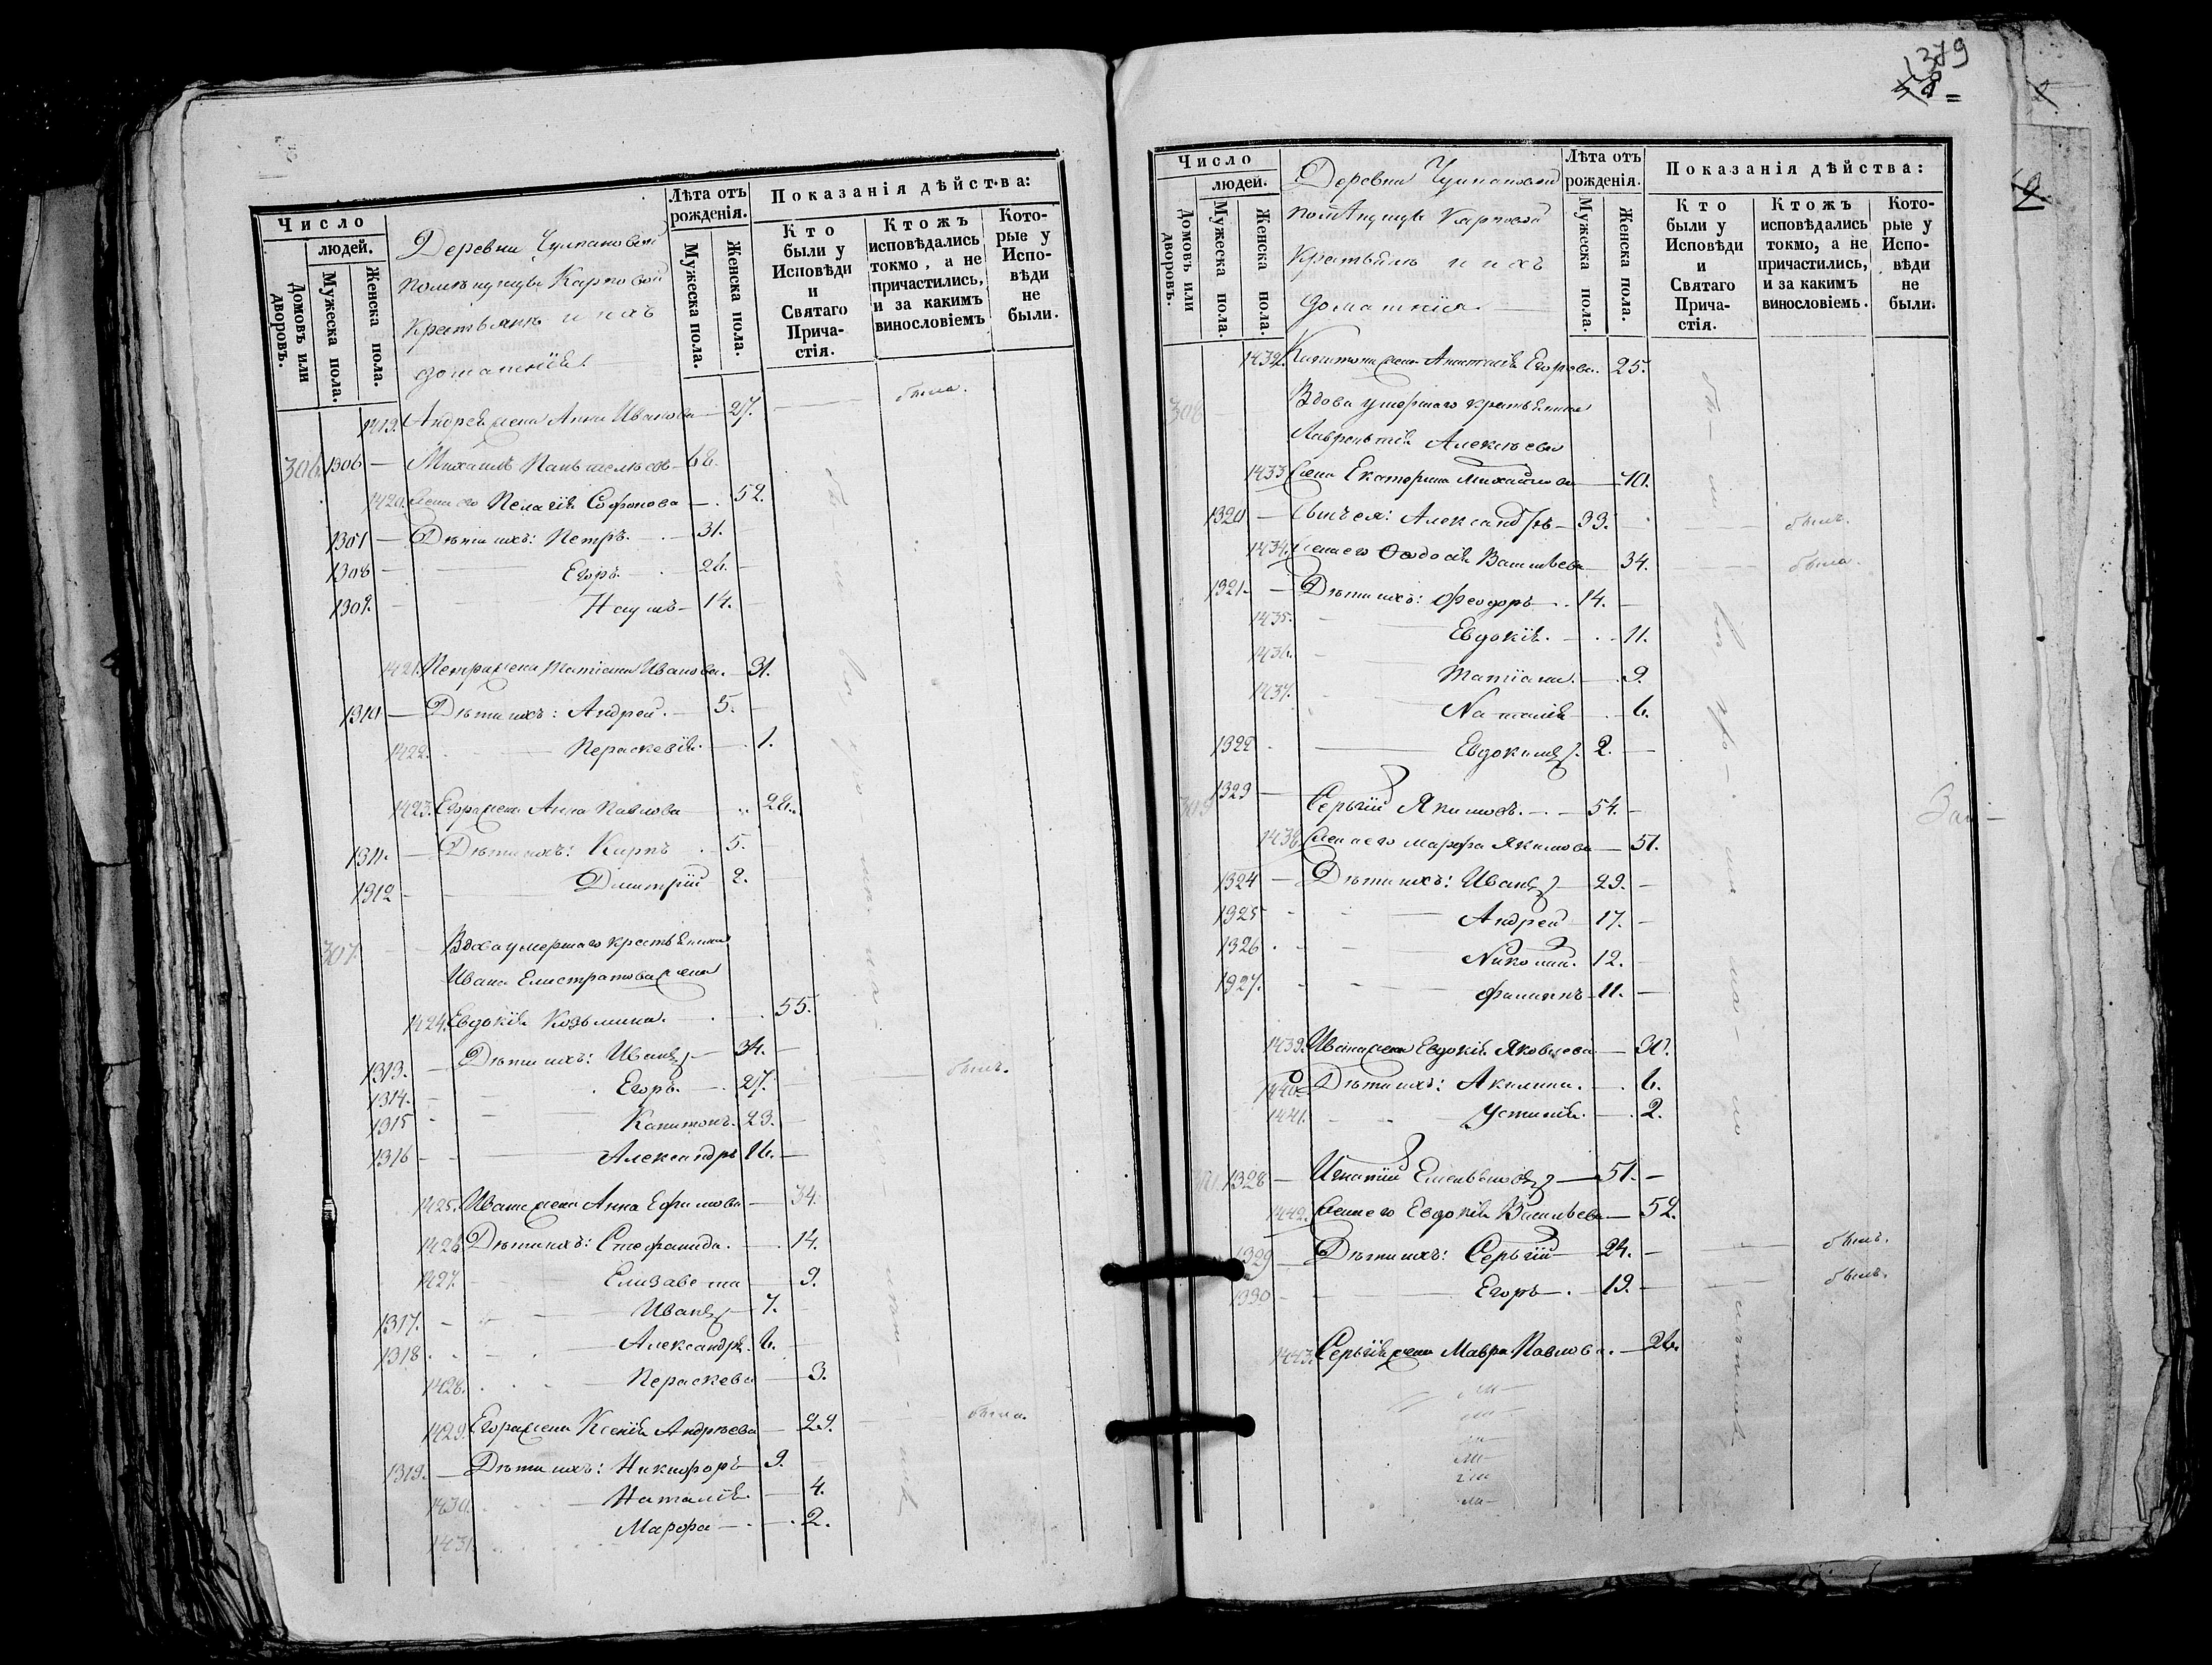 Число
людей.
Домовъ или дворовъ.
Мужеска пола.
Женска пола.
Деревни Чулпановой
помѣщицы Карповой
крестьяне и ихъ
домашнія
Лѣта отъ рожденія.
Мужеска пола.
Женска пола.
Показанія дѣйства:
Кто были у Исповѣди и Святаго Причастія.
Ктожъ исповѣдались токмо, а не причастились, и за какимъ винословіемъ
Которые у Исповѣди не были.
1419. Андрея жена Анна Иванова — 27. была.
306. 1306 — Михаилъ — 68.
1420. Жена его Пелагія Софонова — 52.
1307 — Дѣти ихъ: Петръ. — 31.
1308 — Егоръ. — 26.
1309. Наумъ — 14.
1421. Петра жена Татіана Иванова. — 31.
1310 — Дѣти ихъ: Андрей. — 5.
1422. Параскевія. — 1.
1423. Егора жена Анна Павлова 28.
1311. — Дѣти ихъ: Карпъ 5.
1312 — Димитрій 2.
307. Вдова умершаго крестьянина
Ивана Елистратова жена
1424. Евдокія Козьмина. 55.
1313. — Дѣти ихъ: Иванъ — 34. — былъ.
1314. Егоръ. — 27.
1315 Капитонъ. 23.
1316 — Александръ 16. —
1425. Ивана жена Анна Ефимова — 34.
1426 Дѣти ихъ: Стефанида. — 14.
1427. Елизавета 9.
1317. Иванъ — 7.
1318. Александръ. 6.
1428. Параскева — 3.
1429. Егора жена Ксенія Андреева — 29. была.
1319. — Дѣти ихъ: Никифоръ — 9.
1430. Наталія. — 4.
1431. Марфа — 2.
1379
Число
людей.
Домовъ или дворовъ.
Мужеска пола.
Женска пола.
Деревни Чулпановой
помѣщицы Карповой
Крестьяне и ихъ
домашнія
Лѣта отъ рожденія.
Мужеска пола.
Женска пола.
Показанія дѣйства:
Кто были у Исповѣди и Святаго Причастія.
Ктожъ исповѣдались токмо, а не причастились, и за какимъ винословіемъ.
Которые у Исповѣди не были.
1432. Капитона жена Анастасія Егорова. 25.
308 Вдова умершаго крестьянина
Лаврентія Алексѣева
1433 Жена Екатерина Михайлова
1320 — Сынъ ея: Александръ — 33. былъ.
1434. Жена его Феодосія Васильева 34. была.
1321. — Дѣти ихъ: Феодоръ — 14. —
1435. Евдокія. — 11.
1436. Татіана. — 9.
1437. Наталія — 6.
1322 Евдокимъ. 2. —
309 1323 — Сергій Якимовъ. — 54. —
1438. Жена его Марфа Якимова — 51.
1324 — Дѣти ихъ: Иванъ — 29. —
1325 Андрей 17. —
1326 Николай. 12.
1327. Филиппъ 11. —
1439. Ивана жена Евдокія Яковлева — 30.
1440 Дѣти ихъ: Акилина. — 6.
1441. Устинія. — 2.
1328 — Игнатій Емельяновъ — 51. —
1442. Жена его Евдокія Васильева — 52.
1329 — Дѣти ихъ: Сергій — 24. — былъ.
1330 Егоръ — 19. — былъ.
1443. Сергія жена Мавра Павлова. — 26.